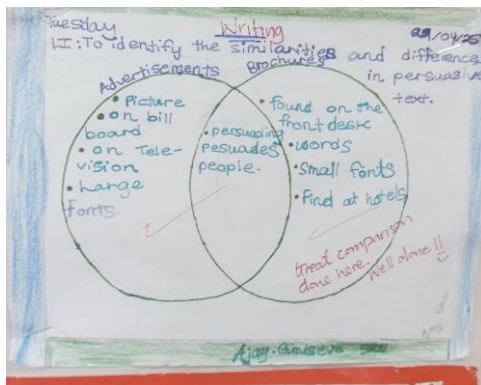 Tuesday
Writing
29/04/25
LI: To identify the similarities and difference
in persuasive
text.
Advertisements
Brochures
• Picture
• on bill
board
• on Tele-
vision
• Large
fonts
• persuading
pesuades
people.
• found on the
front desk
• words
• Small fonts
• Find at hotels
Great comparison
done here. Well done!!
Ajay